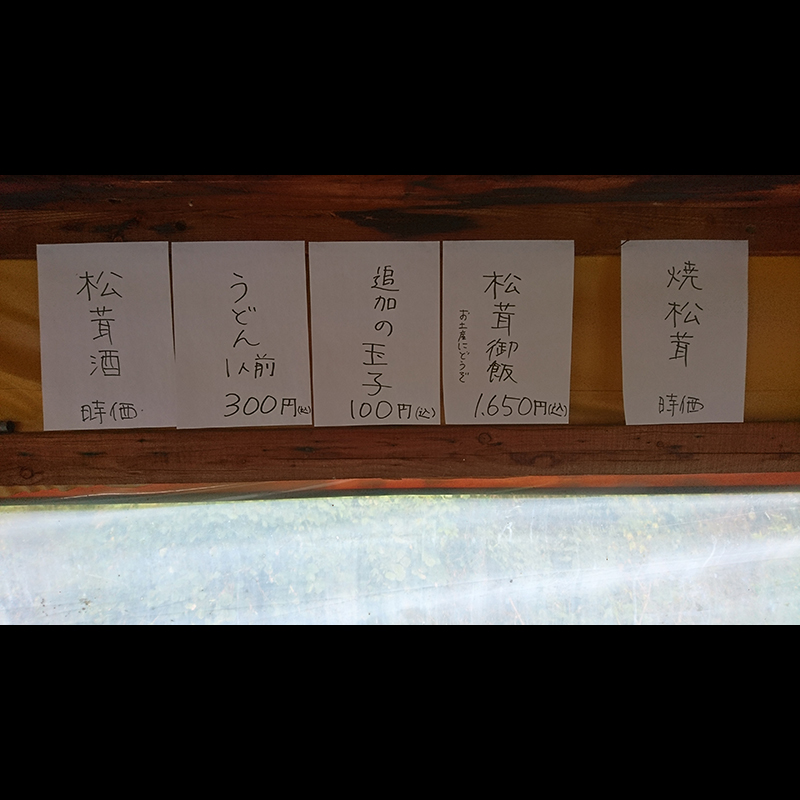 松茸酒
時価
うどん
1人前
300円(込)
追加の玉子
100円(込)
松茸御飯
お土産にどうぞ
1.650円(込)
焼松茸
時価